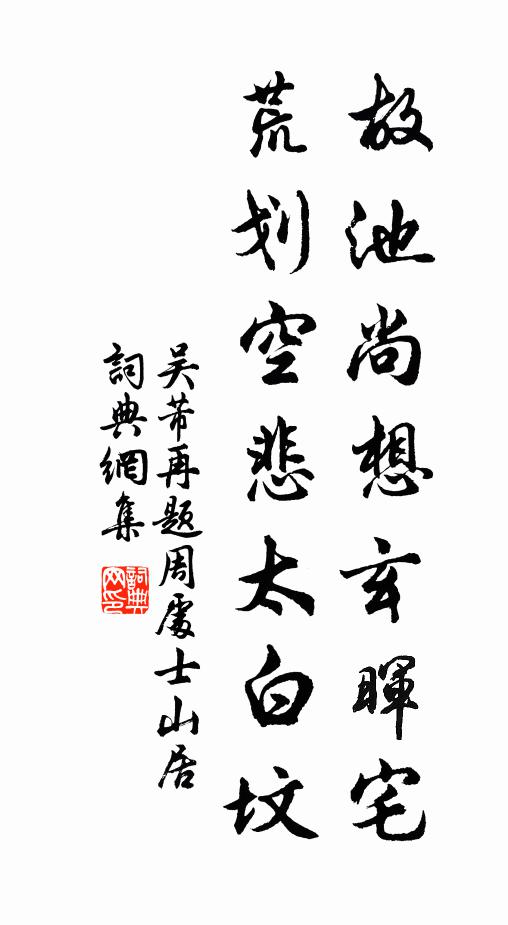 故池尚想玄暉宅
荒划空悲太白坟
吴芾再题周處士山居
詞典網集
詞典網印